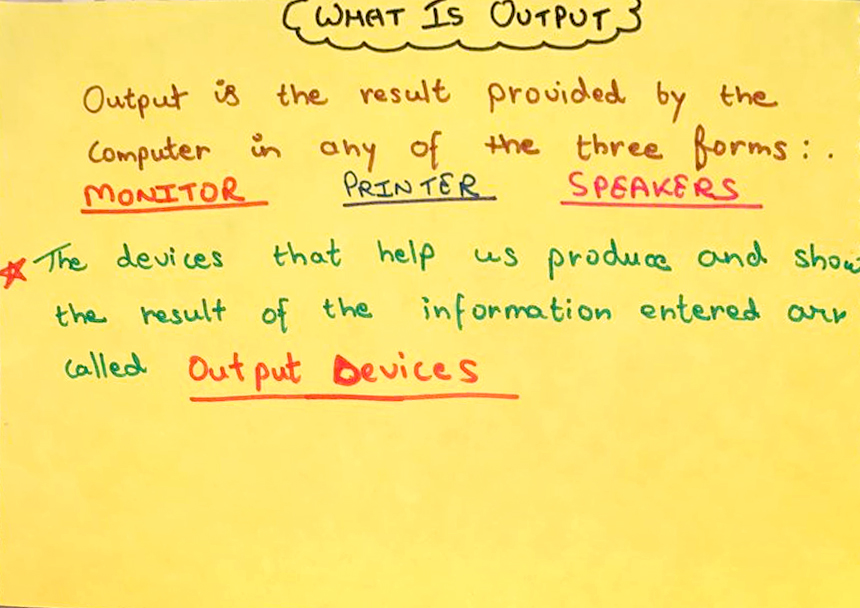 WHAT IS OUTPUT
Output is the result provided by the
computer in any of the three forms:.
MONITOR PRINTER SPEAKERS
The devices that help us produce and show
the result of the information entered are
called Output Devices